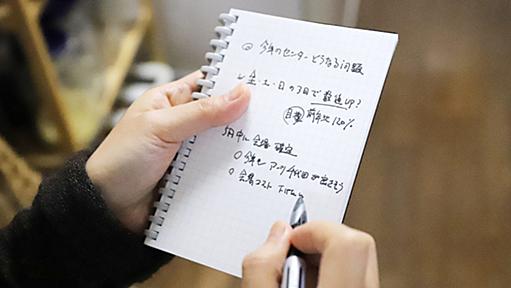 ◎ 今年のセンターどうなる問題
✓ 金・土・日の3日で 数値UP?
目標 前年比 120%
月中に 会場 確定
○ 今年も アーツ千代田が出さそう
○ 会場コスト 下げたい